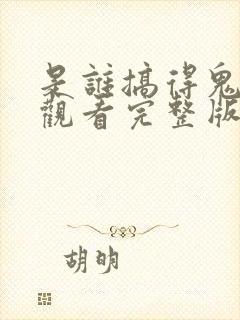 是誰搞得鬼
觀看完整版
胡明